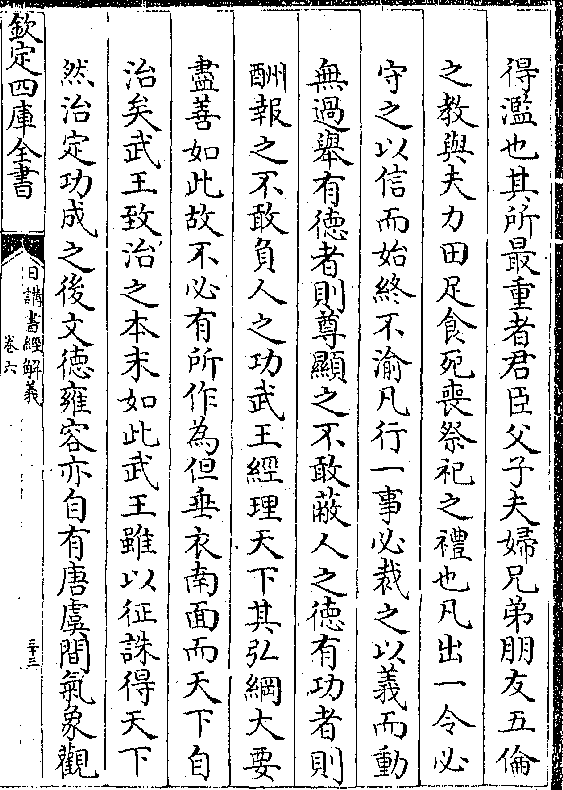 得濫也其所最重者君臣父子夫婦兄弟朋友五倫
之教與夫力田足食死喪祭祀之禮也凡出一令必
守之以信而始終不渝凡行一事必裁之以義而動
無過舉有德者則尊顯之不敢蔽人之德有功者則
酬報之不敢負人之功武王經理天下其弘綱大要
盡善如此故不必有所作為但垂衣南面而天下自
治矣武王致治之本末如此武王雖以征誅得天下
然治定功成之後文德雍容亦自有唐虞間氣象觀
欽定四庫全書
日講書經解義
卷六
三十三